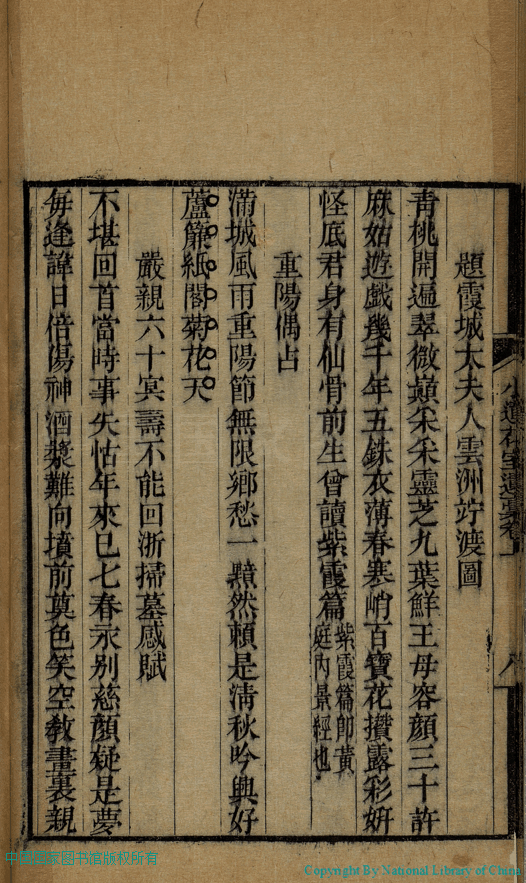 題霞城太夫人雲洲竚渡圖
青桃開遍翠微巔采采靈芝九葉鮮王母容顏三十許
麻姑遊戲幾千年五銖衣薄春寒峭百寶花攢露彩妍
怪底君身有仙骨前生曾讀紫霞篇紫霞篇即黃庭內景經也
重陽偶占
滿城風雨重陽節無限鄉愁一顆然賴是清秋吟興好
蘆簾紙閣菊花天
嚴親六十冥壽不能回浙掃墓感賦
不堪回首當時事失怙年來已七春永别慈顏疑是夢
每逢諱日倍傷神酒漿難向墳前奠色笑空教畫裏親
小蓮花室遺稾卷一
八
中国国家图书馆版权所有
Copyright By National Library of China